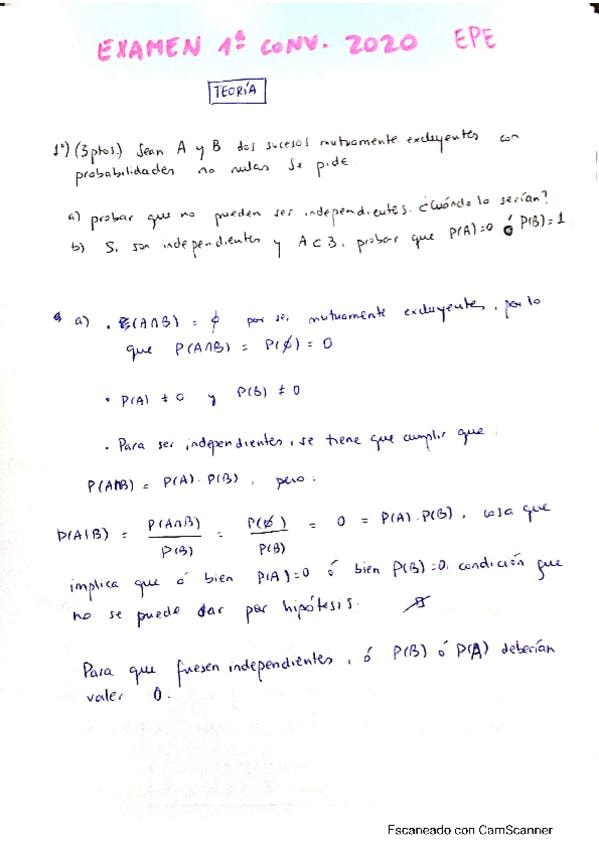 EXAMEN 1ª CONV. 2020 EPE
TEORÍA
1º) (3ptos.) Sean A y B dos sucesos mutuamente excluyentes con
probabilidades no nulas Se pide
a) probar que no pueden ser independientes. ¿Cuándo lo serían?
b) Si son independientes y A ⊂ B, probar que P(A)=0 ó P(B)=1
a) . (A∩B) = ∅ por ser mutuamente excluyentes, por lo
que P(A∩B) = P(∅) = 0
· P(A) ≠ 0 y P(B) ≠ 0
. Para ser independientes, se tiene que cumplir que
P(A∩B) = P(A) · P(B), pero:
P(A|B) = P(A∩B)/P(B) = P(∅)/P(B) = 0 = P(A) . P(B), cosa que
implica que ó bien P(A)=0 ó bien P(B)=0, condición que
no se puede dar por hipótesis.
Para que fuesen independientes, ó P(B) ó P(A) deberían
valer 0.
Escaneado con CamScanner